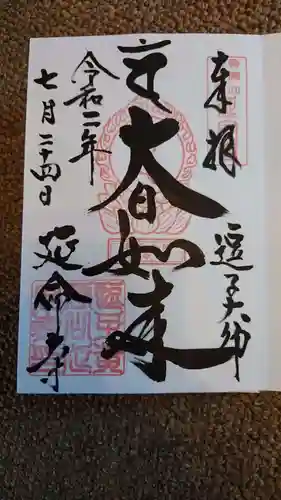 奉拝
逗子大師
大日如来
令和二年
七月二十四日
延命寺